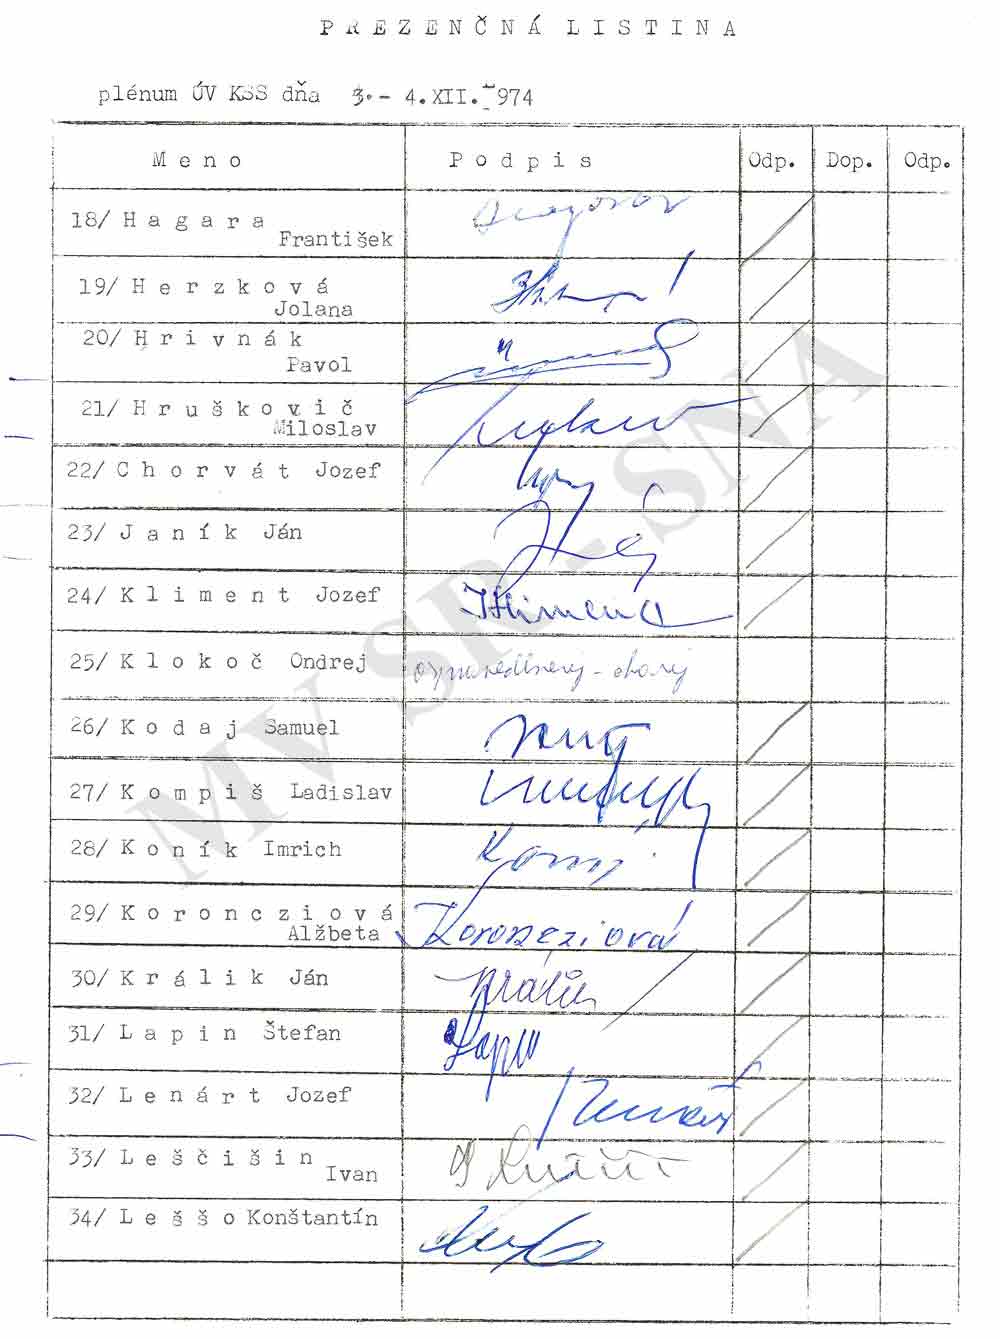 PREZENČNÁ LISTINA
plénum ÚV KSS dňa 3.- 4.XII.1974
Meno Podpis Odp. Dop. Odp.
18/ Hagara
František
19/ Herzková
Jolana
20/ Hrivnák
Pavol
21/ Hruškovič
Miloslav
22/ Chorvát Jozef
23/ Janík Ján
24/ Kliment Jozef
25/ Klokoč Ondrej ospravedlnený - chorý
26/ Kodaj Samuel
27/ Kompiš Ladislav
28/ Koník Imrich
29/ Koroncziová
Alžbeta Koroncziová
30/ Králik Ján
31/ Lapin Štefan
32/ Lenárt Jozef
33/ Leščišin
Ivan
34/ Leššo Konštantín
MV SR - SNA